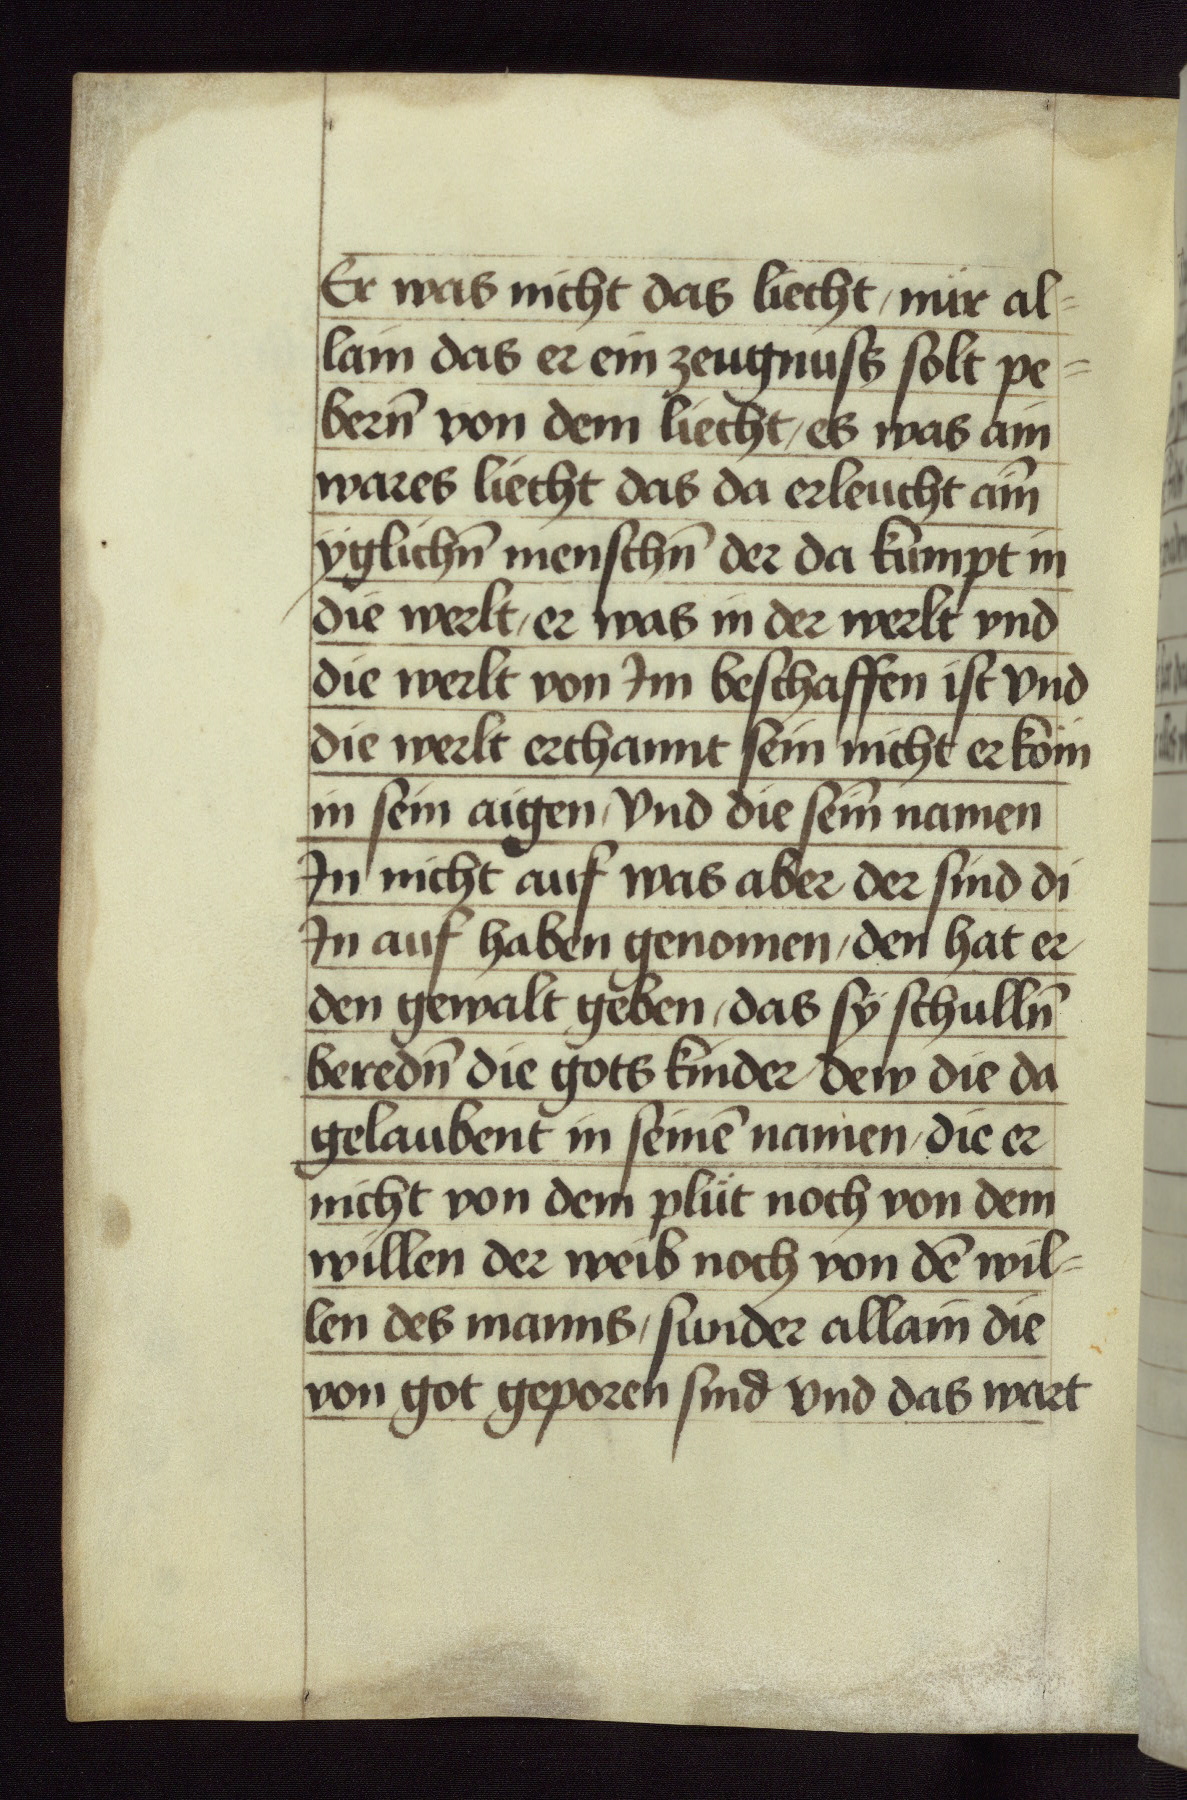 Er was nicht das liecht / nür al=
lain das er ein zeugnuss solt pe=
bern̄ von dem liecht / es was ain
wares liecht das da erleucht aim̄
ÿglichn̄ menschn̄ der da kumpt in
die werlt / er was in der werlt vnd
die werlt von Im beschaffen ist Vnd
die werlt erchannt sein nicht er kom̄
in sein aigen / Vnd die sein̄ namen
In nicht auf was aber der sind di
In auf haben genomen / den hat er
den gewalt geben / das sÿ schulln̄
beredn̄ die gots kinder / dew die da
gelaubent in seinē namen / die er
nicht von dem plüt noch von dem
willen der weib noch von dē wil=
len des manns / sunder allain die
von got geporen sind Vnd das wart